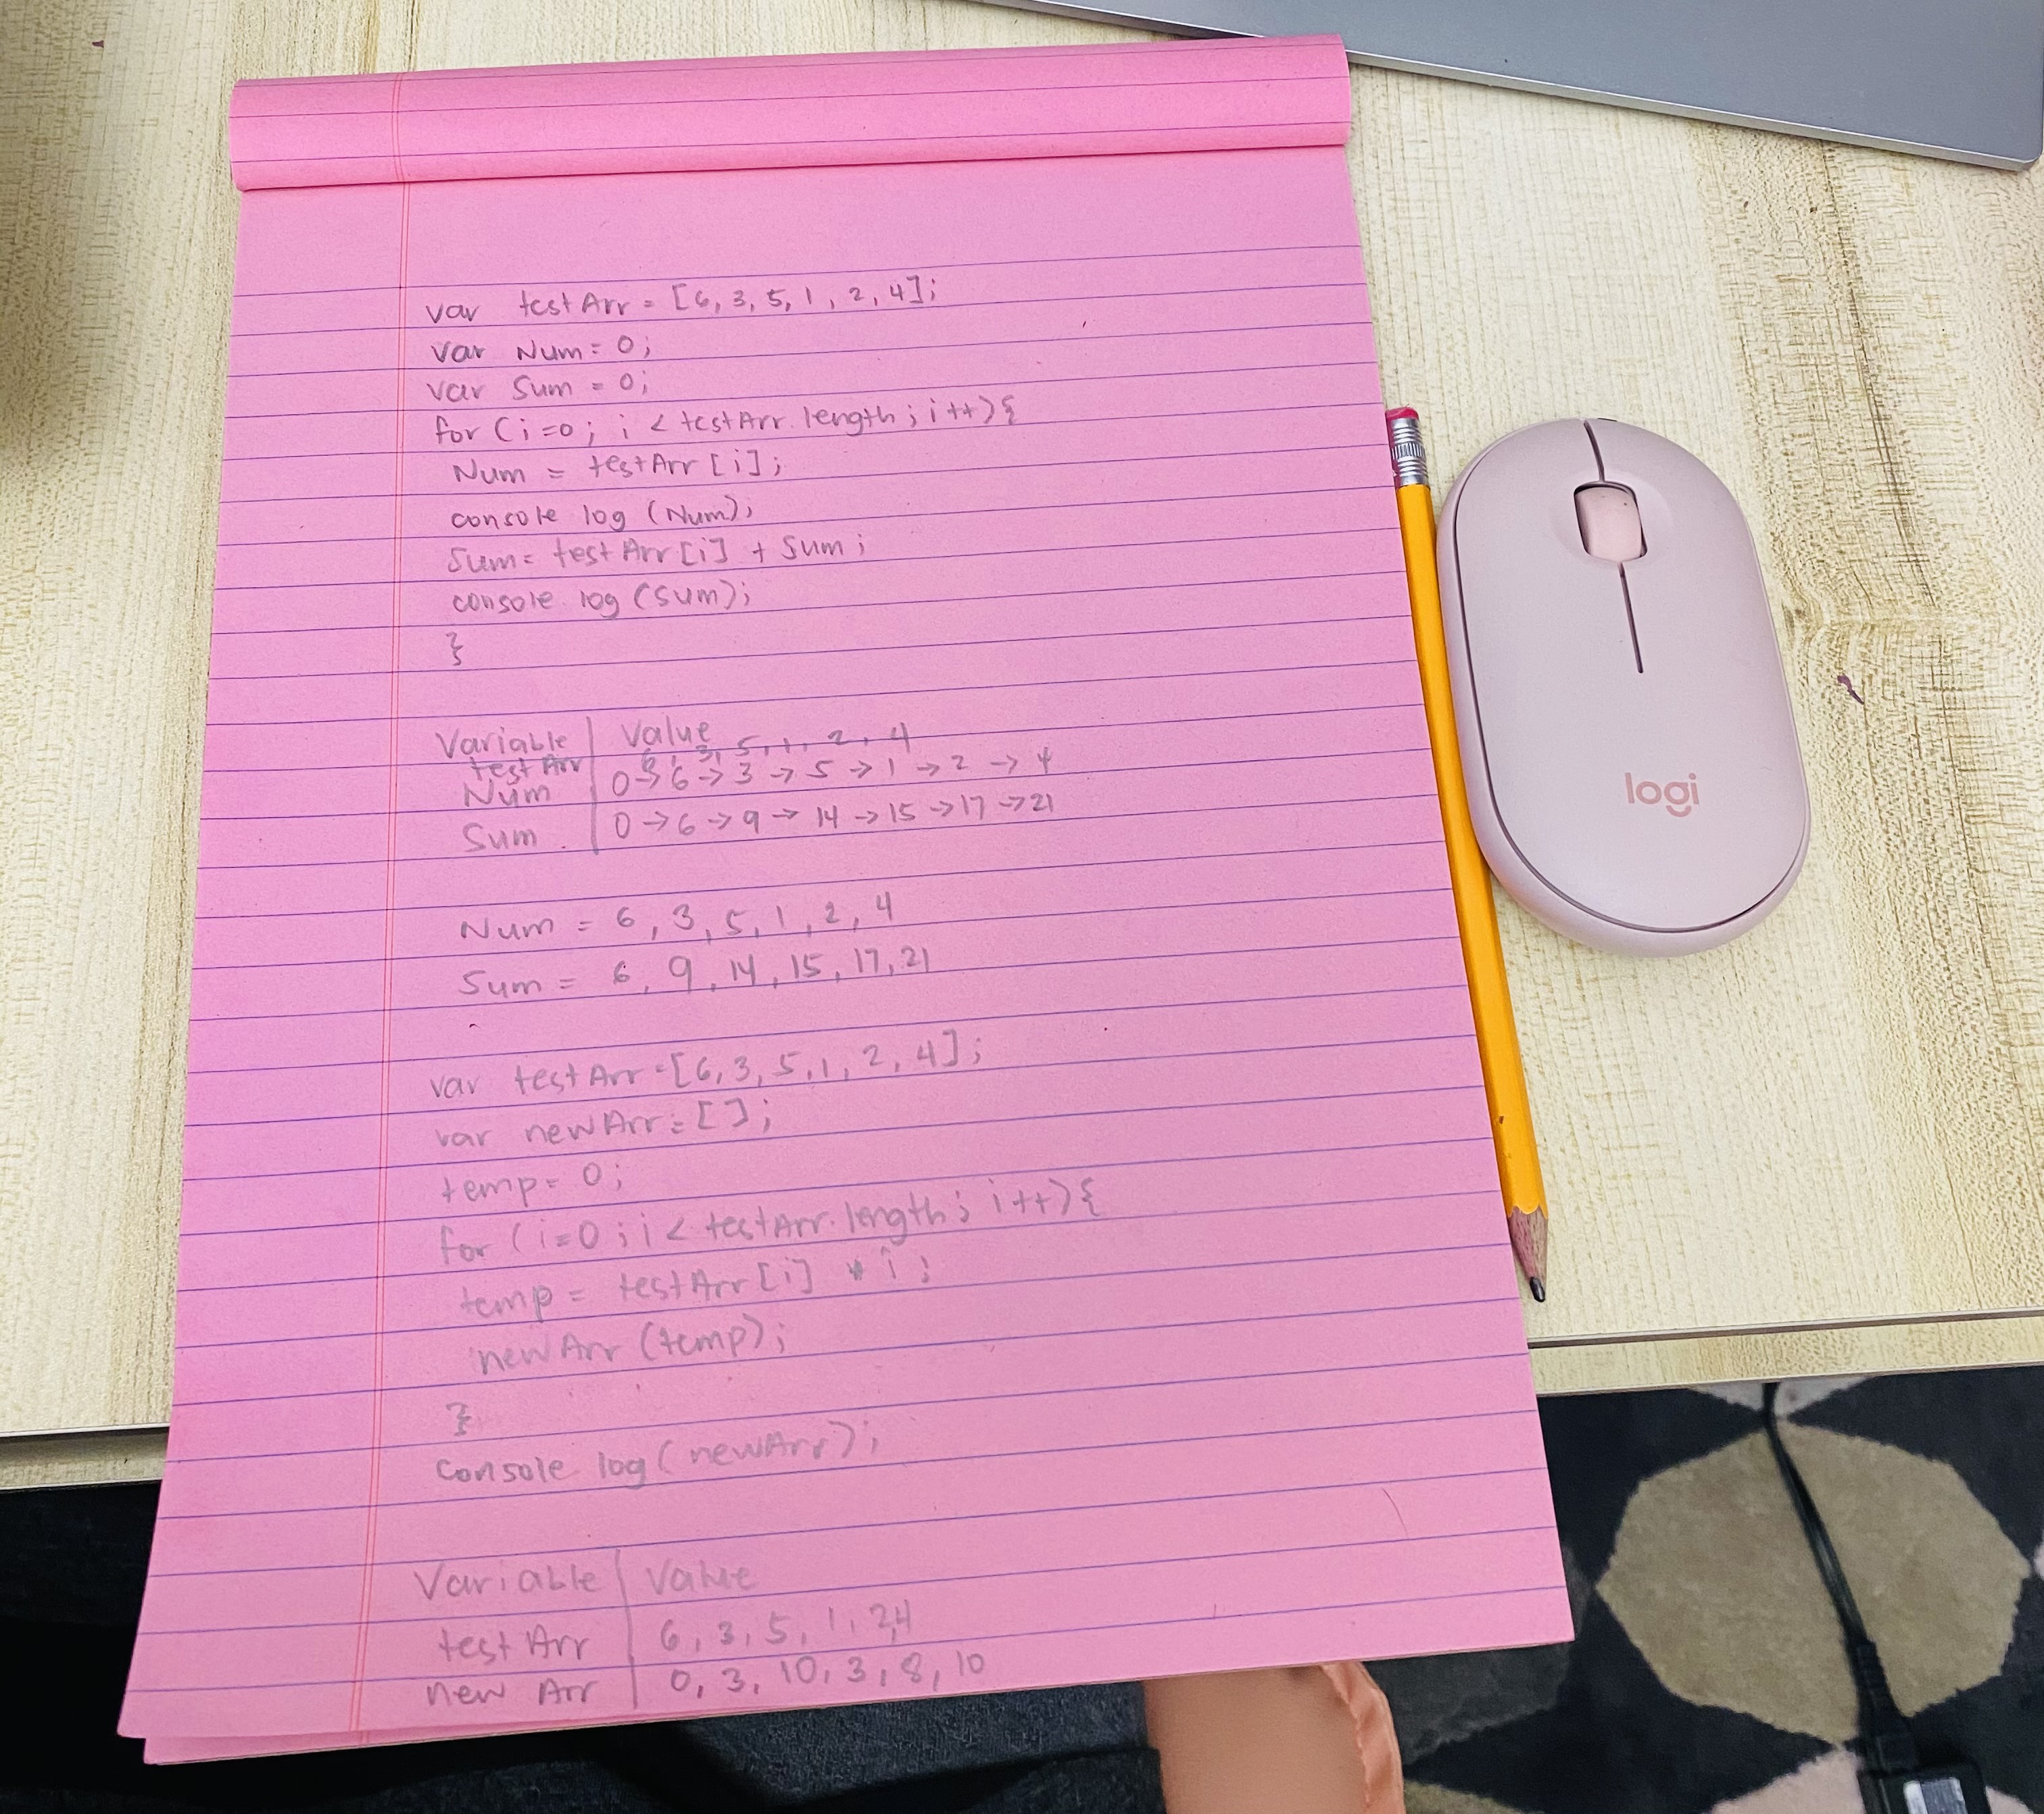 var testArr = [6, 3, 5, 1, 2, 4];
var Num = 0;
var Sum = 0;
for (i=0; i < testArr.length; i++){
Num = testArr[i];
console log (Num);
Sum = testArr[i] + Sum;
console.log (Sum);
}
Variable | Value
testArr | 6, 3, 5, 1, 2, 4
Num | 0→6→3→5→1→2→4
Sum | 0→6→9→14→15→17→21
Num = 6, 3, 5, 1, 2, 4
Sum = 6, 9, 14, 15, 17, 21
var testArr=[6,3,5,1,2,4];
var newArr=[];
temp= 0;
for (i=0; i < testArr.length; i++){
temp = testArr[i] * i;
newArr (temp);
}
console log(newArr);
Variable | Value
testArr | 6, 3, 5, 1, 2,4
new Arr | 0, 3, 10, 3, 8, 10
logi